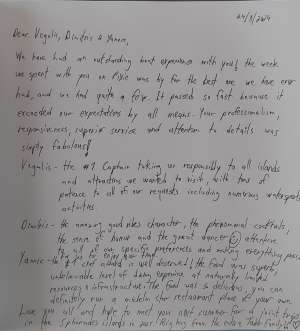 Dear Vagelis, Dimitris & Yannis,
We have had an outstanding boat experience with you! The week
we spent with you on Pixie was by far the best one we have ever
had, and we had quite a few. It passed so fast because it
exceeded our expectations by all means. Your professionalism,
responsiveness, superior service and attention to details was
simply fabulous!
Vagelis - the #1 Captain taking us responsibly to all islands
and attractions we wanted to visit, with tons of
patience to all of our requests including numerous watersports
activities
Dimitris - the amazing good vibes character, the phenomenal cocktails,
the sense of humor and the great attentive
to all of our specific preferences and making everything
for us to enjoy
Yannis - the chef ashore is well deserved! The food was superb,
unbelievable level of dining experience at
resources & infrastructure. The food was so delicious, you can
definitely run a michelin star restaurant place of your own.
Love you all and hope to meet you next summer for a joint
in the Sporades islands